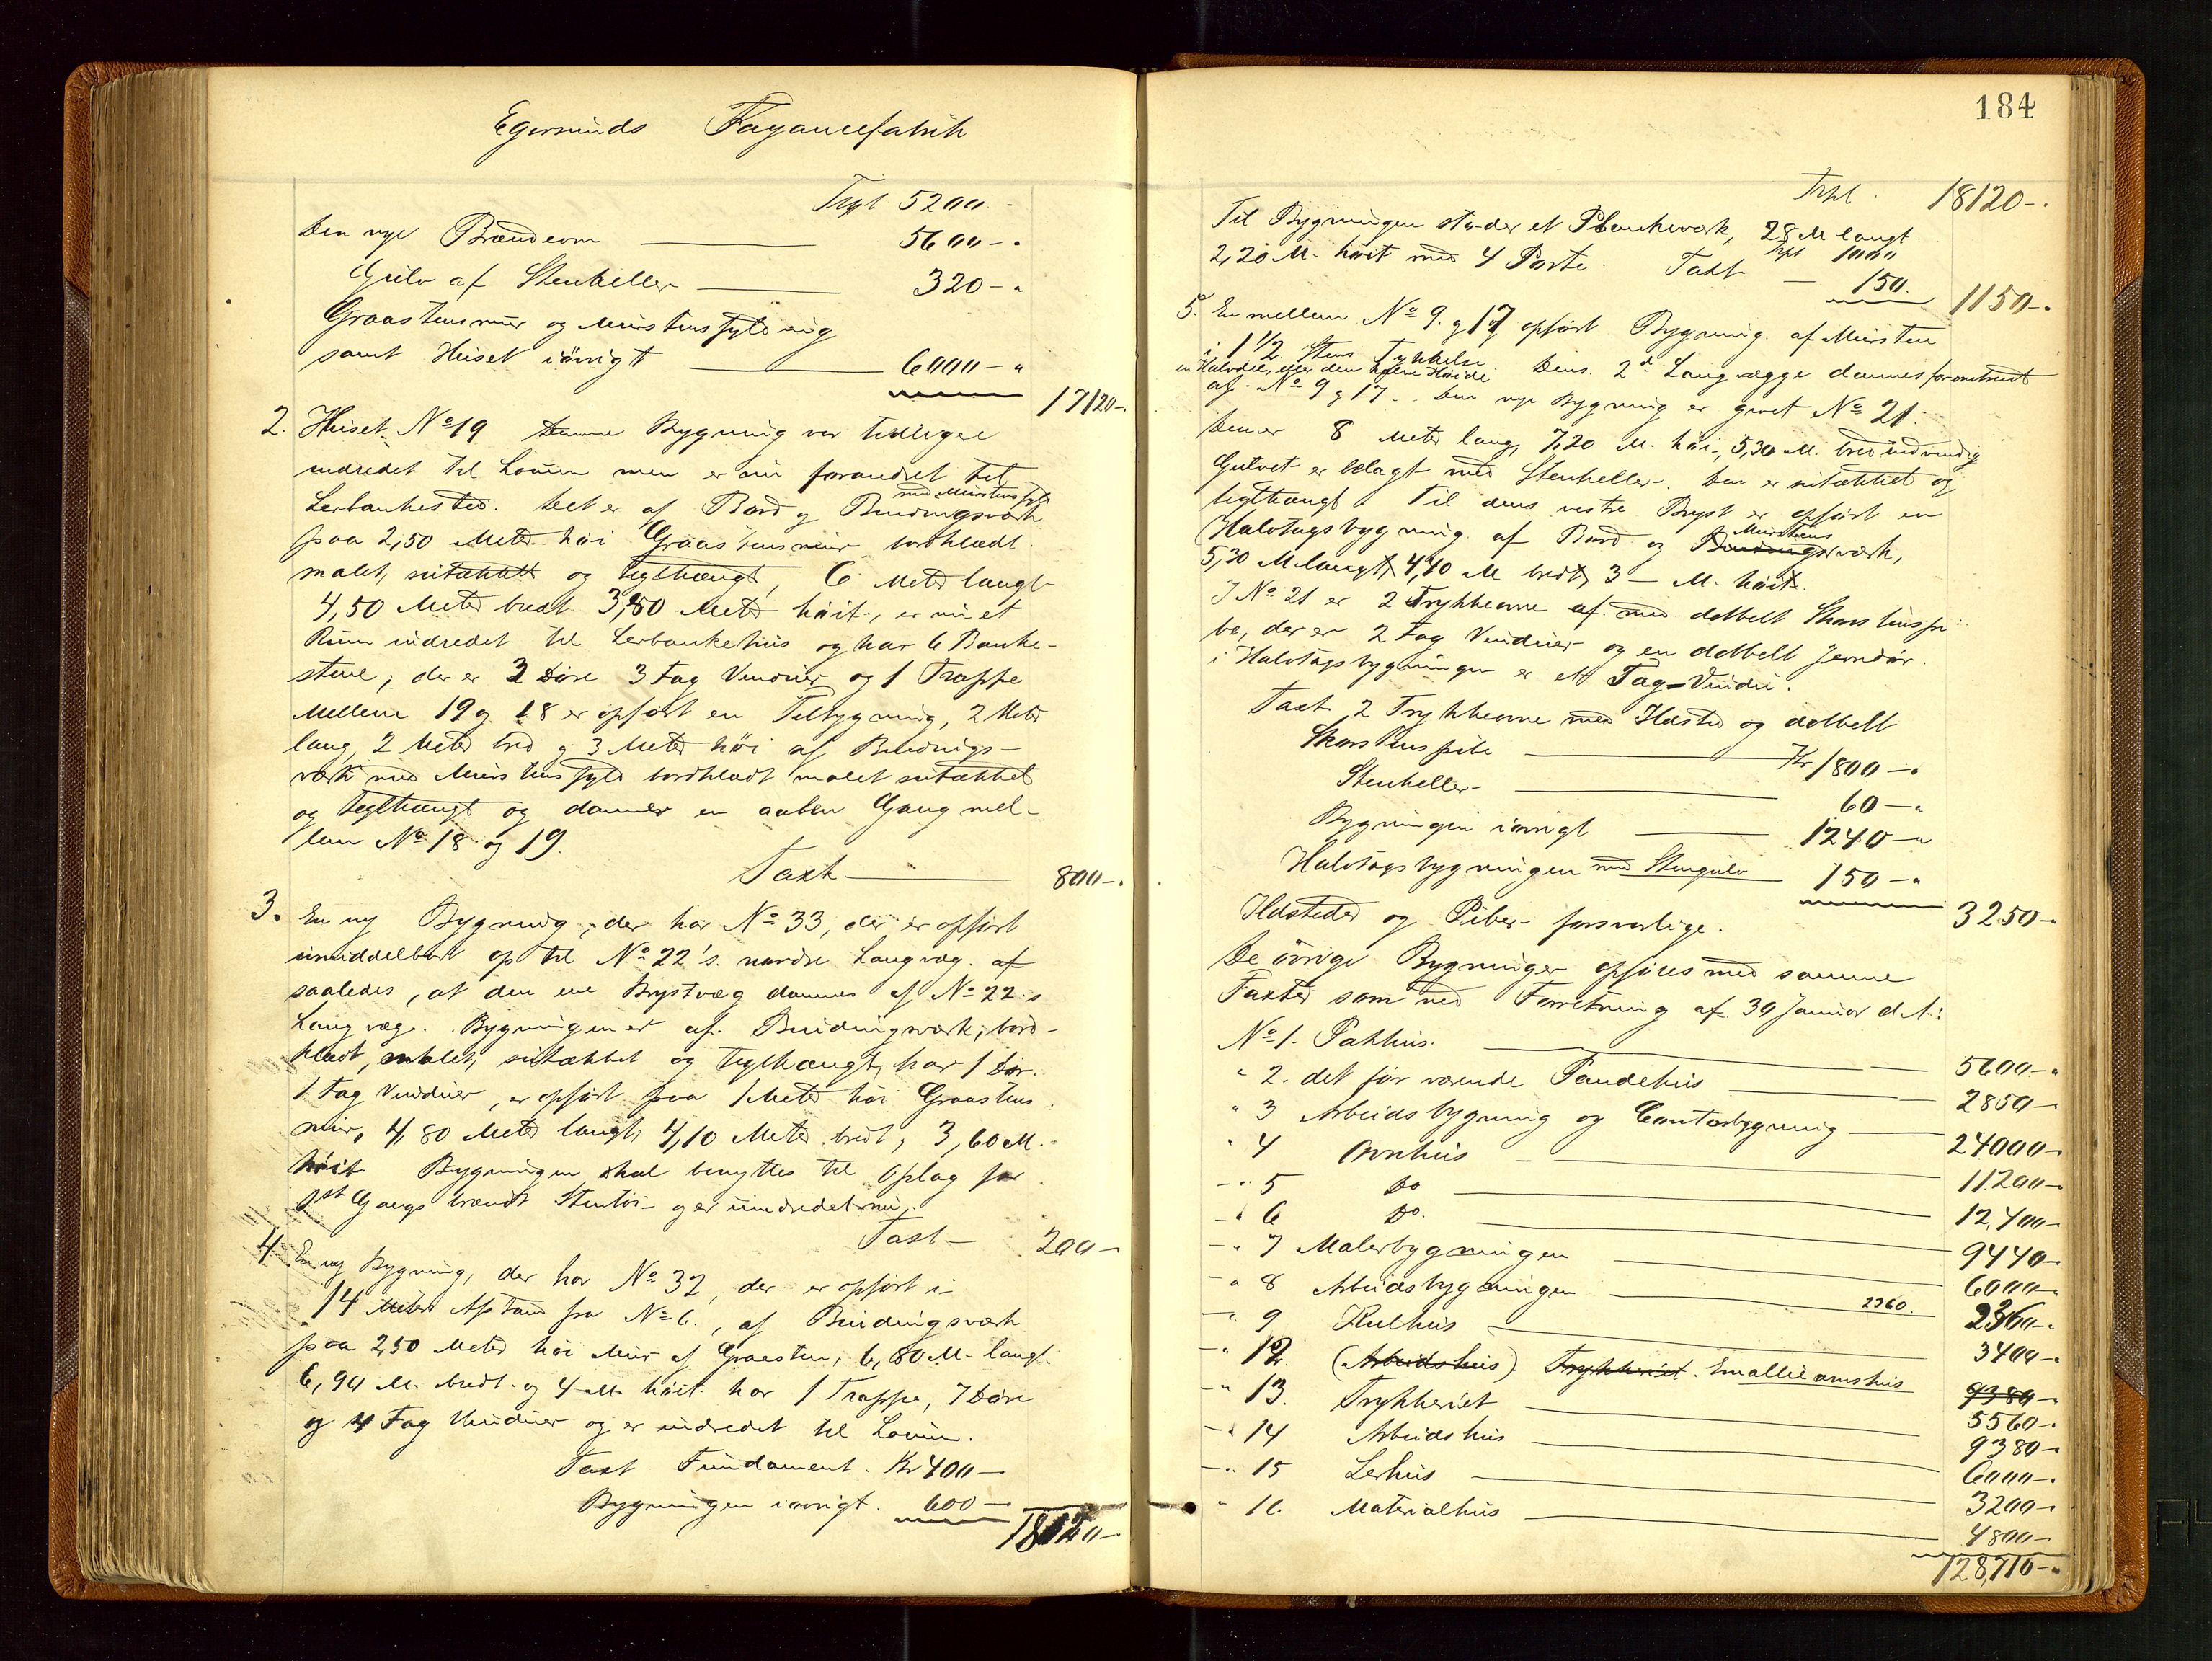 Egersunds Fayancefabrik
Trpt 5200 -
Den nye Brændeovn — 5600 - "
Gulv af Stenheller — 320 - "
Graastensmur og Murstensfyldning
samt Huset iövrigt — 6000 - "
17120 - "
2. Huset No 19 Denne Bygning var tidligere
indredet til Locum men er nu forandret til
Lerbankested. Det er af Bord og Bindingsværk med Murstensfyld
paa 2,50 Meter höi Graastensmur bordklædt
malet, sutækket og teglhængt, 6 Meter langt
4,50 Meter bredt 3,50 Meter höit, er nu et
Rum indredet til Lerbankehus og har 6 Banke-
stene; der er 2 Döre 3 Fag Vinduer og 1 Trappe
Mellem 19 og 18 er opfört en Tilbygning, 2 Meter
lang, 2 Meter bred og 3 Meter höi af Bindings-
værk med Murstensfyld bordklædt malet sutækket
og teglhængt og danner en aaben Gang mel-
lem No 18 og 19.
Taxt — 800 - "
3. En ny Bygning, der har No 33, der er opfört
umiddelbart op til No 22's nordre Langvæg af
saaledes, at den ene Brystvæg dannes af No 22's
Langvæg. Bygningen er af Bindingsværk, bord-
klædt, malet, sutækket og teglhængt, har 1 Dör
1 Fag Vinduer, er opfört paa 1 Meter höi Graastens
mur, 4,80 Meter langt, 4,10 Meter bredt, 3,60 M.
höit Bygningen skal benyttes til Oplag for
1st Gangs brændt Stentöi og er uindredet nu.
Taxt — 200 -
4. En ny Bygning, der har No 32, der er opfört i
14 Meters Afstand fra No 6., af Bindingsværk
paa 2,50 Meter höi Mur af Graasten, 6,80 M. langt
6,90 M. bredt og 4 M. höit har 1 Trappe, 7 Döre
og 4 Fag Vinduer og er indredet til Locum.
Taxt Fundament. Kr 400 -
Bygningen iövrigt. 600 -
18120 -
184
Trpt. 18120 - "
Til Bygningen stöder et Plankeværk, 28 M langt
2,20 M. höit med 4 Porte. Trpt 1000
Taxt — 150.
1150 - "
5. En mellem No 9. og 17 opfört Bygning af Mursten
i 1 1/2 Stens Tykkelse Dens 2de Langvægge dannes foromtrent
en Halvdel, efter den hele Höide
af No 9 og 17. Den nye Bygning er givet No 21.
Den er 8 Meter lang, 7,20 M. höi, 5,30 M. bred indvendig
Gulvet er belagt med Stenheller. Den er sutækket og
teglhængt Til dens vestre Bryst er opfört en
Halvtagsbygning af Bord og Bindingsværk, Murstens
5,30 M langt, 4,40 M bredt, 3 — M. höit.
I No 21 er 2 Trykkeovne af med dobbelt Skorstenspi-
be, der er 2 Fag Vinduer og en dobbelt Jerndör.
i Halvtagsbygningen er et Fag Vindu.
Taxt 2 Trykkeovne med Ildsted og dobbelt
Skorstenspibe — Kr 1800 - "
Stenheller — 60 - "
Bygningen iövrigt — 1240 - "
Halvtagsbygningen med Stengulv — 150 - "
3250 -
Ildsteder og Piber forsvarlige.
De övrige Bygninger opföres med samme
Taxter som ved Forretning af 30 Januar d.A.:
No 1. Pakhus. — 5600 - "
" 2. det för værende Pandehus — 2850 -
" 3 Arbeidsbygning og Contorbygning — 24000 -
" 4 Ovnhus — 11200 -
" 5 Do — 12,400 -
" 6 Do. — 9440 -
" 7 Malerbygningen — 6000 -
" 8 Arbeidsbygningen — 2360. 2360 -
" 9 Kulhus — 3400 -
" 12. (Arbeidshus) Trykkeriet. Emallieovnshus 9380 -
5560 -
" 13. Trykkeriet — 9380 -
" 14 Arbeidshus — 6000 -
" 15 Lerhus — 3200 -
" 16. Materialhus — 4800 -
128,710 - "